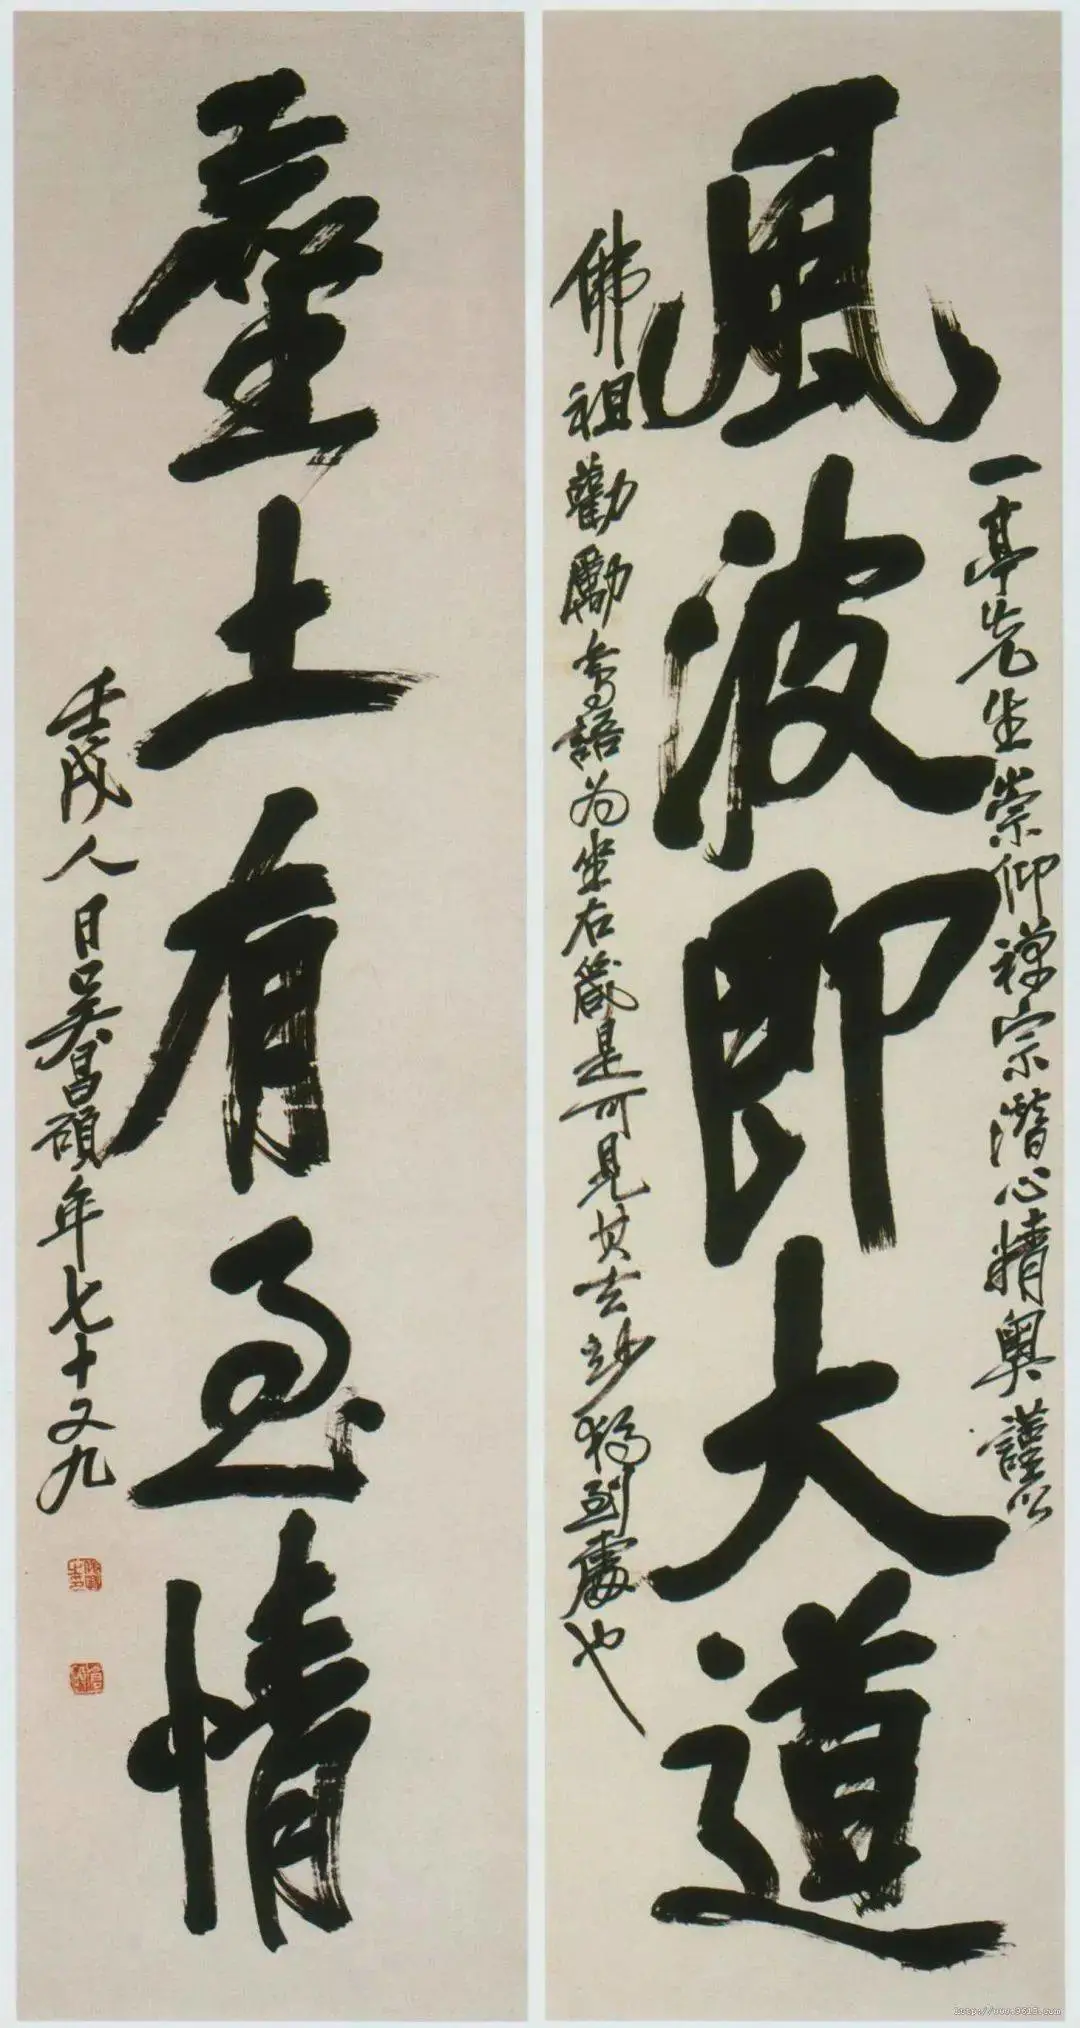 一亭先生崇仰禪宗潛心精奧謹以
風波即大道
佛祖勸勵等語为坐右箴是可見其玄妙獨到處也
塵土有至情
壬戌人日吳昌碩年七十又九
http://www.9610.com